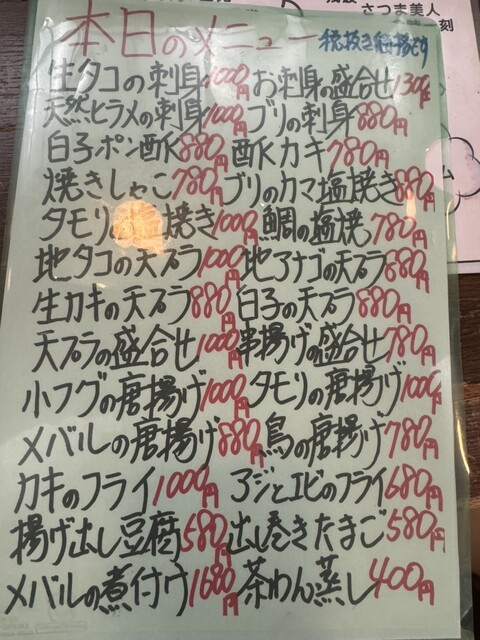 さつま美人
一刻
本日のメニュー 税抜き価格です
生タコの刺身1000円 お刺身の盛合せ1300円
天然ヒラメの刺身1000円 ブリの刺身880円
白子ポン酢880円 酢カキ780円
焼きしゃこ780円 ブリのカマ塩焼き880円
タモリの塩焼き1000円 鯛の塩焼780円
地タコの天プラ1000円 地アナゴの天プラ880円
生カキの天プラ880円 白子の天プラ880円
天プラの盛合せ1000円 串揚げの盛合せ780円
小フグの唐揚げ1000円 タモリの唐揚げ1000円
メバルの唐揚げ880円 鳥の唐揚げ780円
カキのフライ1000円 アジとエビのフライ680円
揚げ出し豆腐580円 出し巻きたまご580円
メバルの煮付け1680円 茶わん蒸し400円